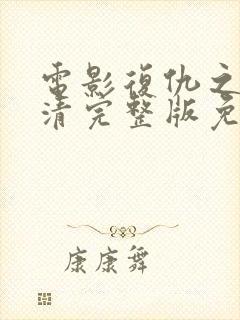 電影復仇之
清完整版免
康康舞